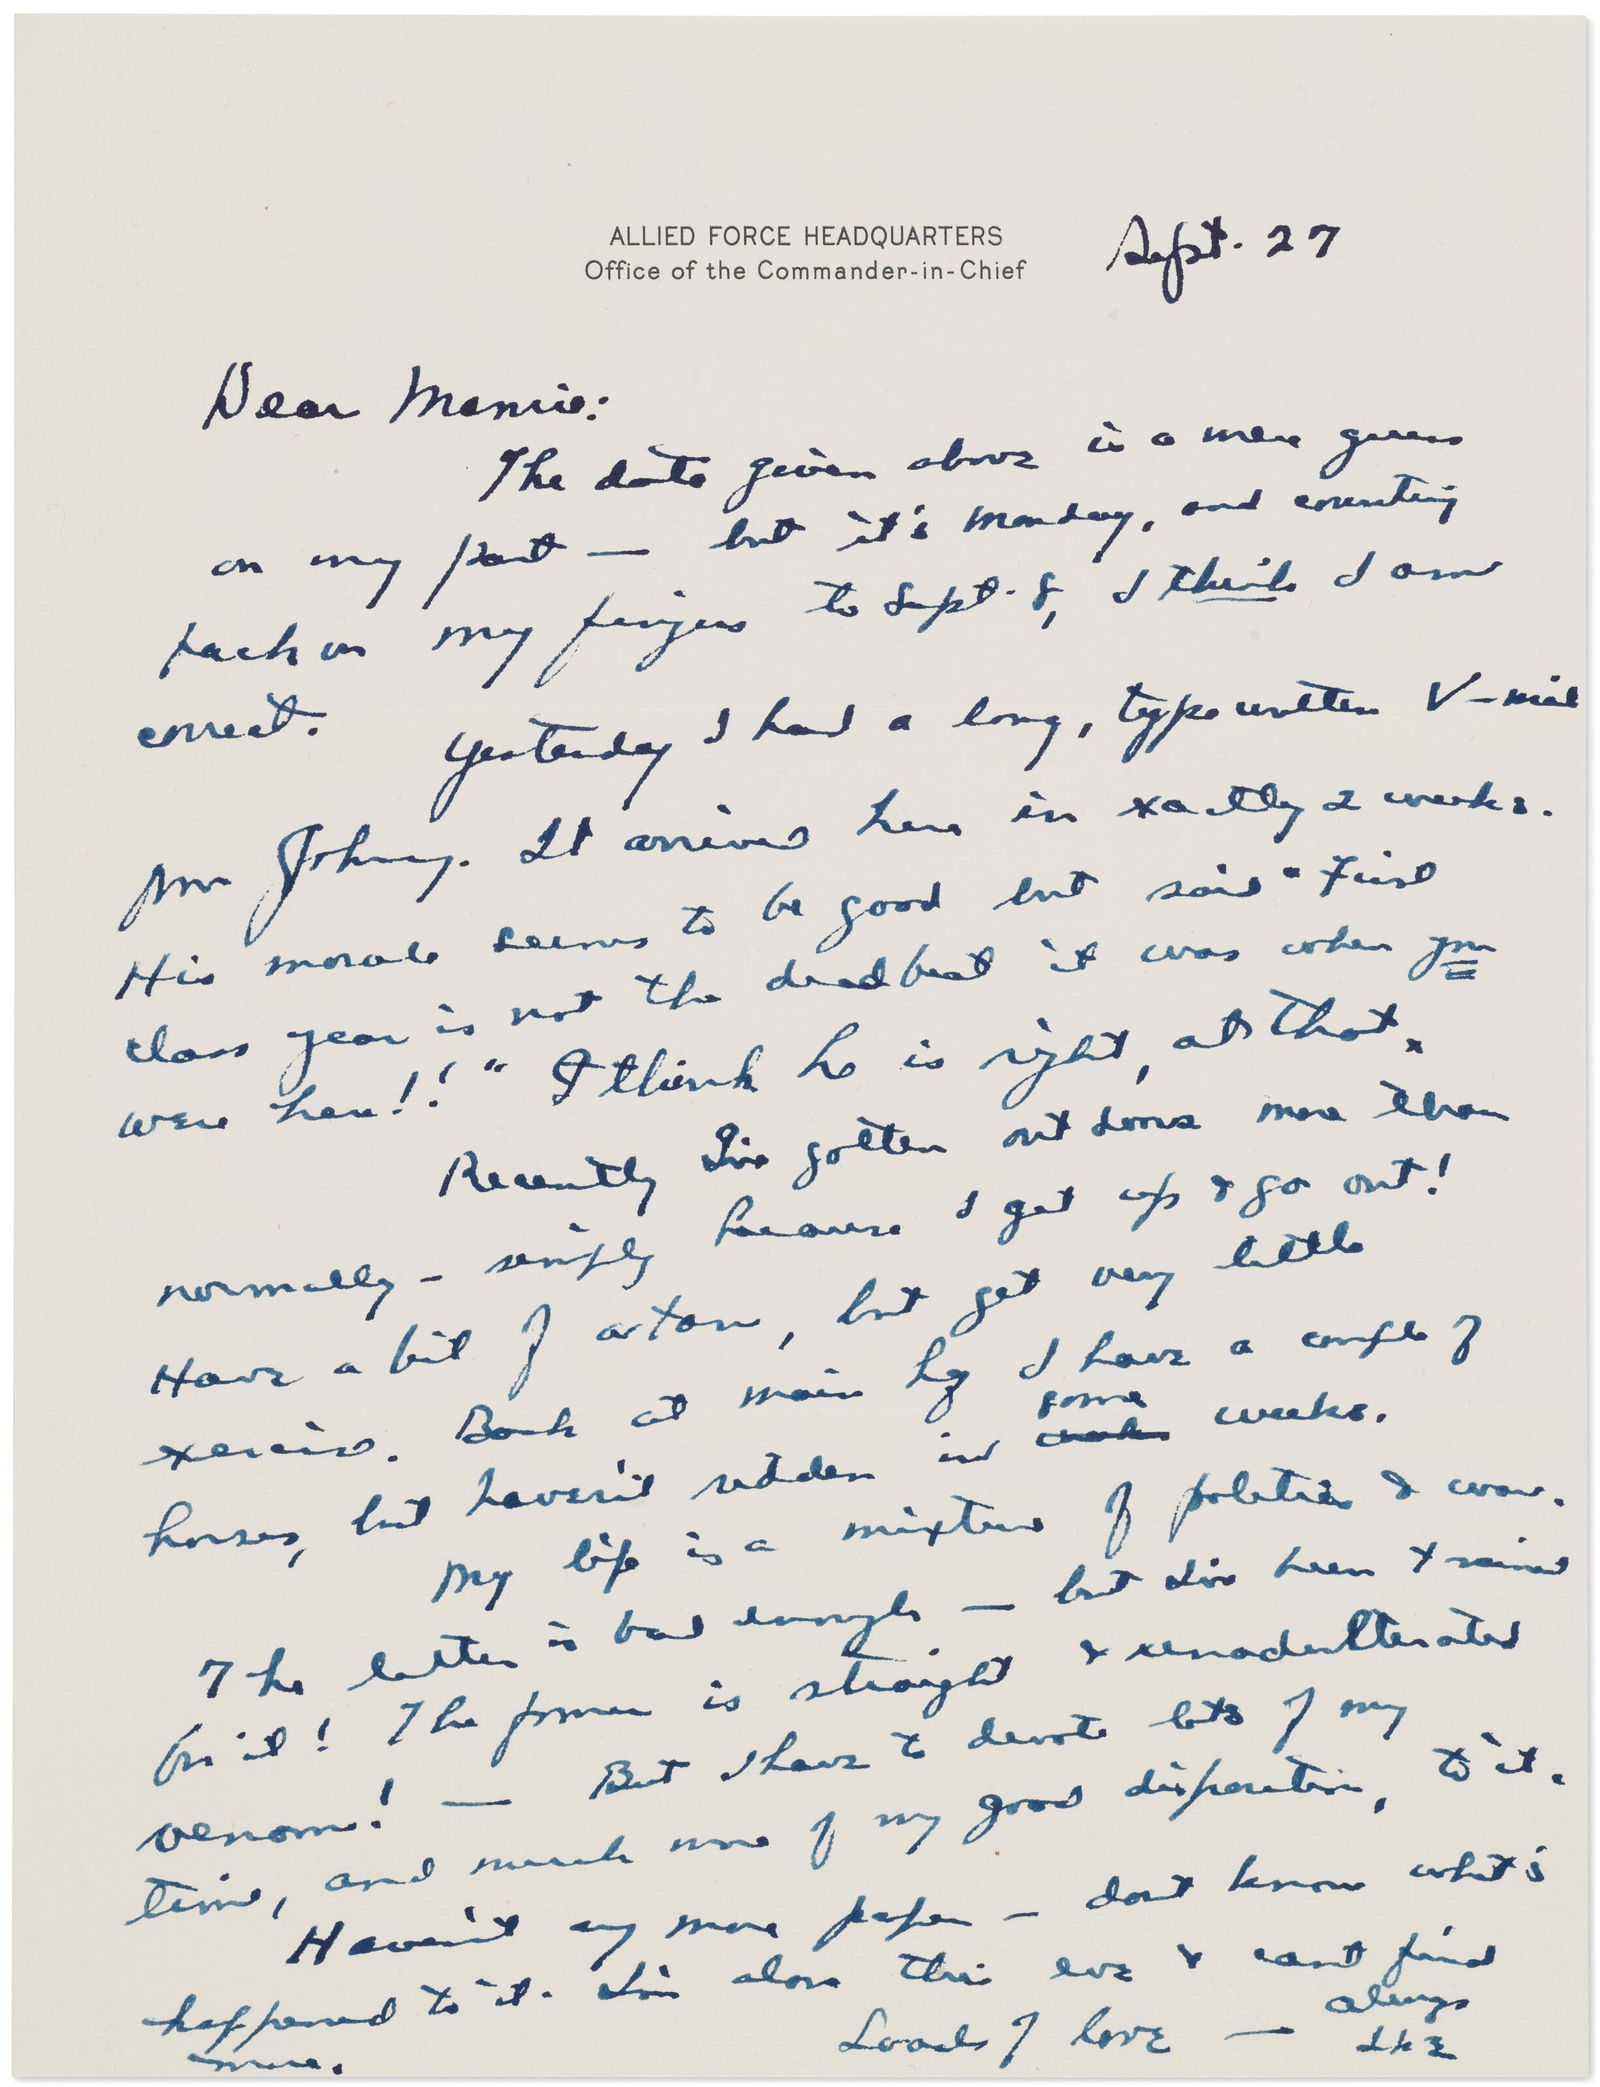 ALLIED FORCE HEADQUARTERS
Office of the Commander-in-Chief
Sept. 27
Dear Mamie:
The date given above is a mere guess
on my part — but it's Monday, and counting
back on my fingers to Sept. 8, I think I am
correct.
Yesterday I had a long, typewritten V-mail
from Johnny. It arrived here in exactly 2 weeks.
His morale seems to be good but said "First
class year is not the deadbeat it was when you
were here!!" I think he is right, at that.
Recently I've gotten out doors more than
normally - simply because I get up & go out!
Have a bit of a tan, but get very little
exercise. Back at main hq I have a couple of
horses, but haven't ridden in some weeks.
My life is a mixture of politics & war.
The latter is bad enough — but I've been trained
for it! The former is straight & unadulterated
venom! — But I have to devote lots of my
time, and much more of my good disposition, to it.
Haven't any more paper — don't know what's
happened to it. I'm alone this eve & can't find
more.
Loads of love —
always
Ike